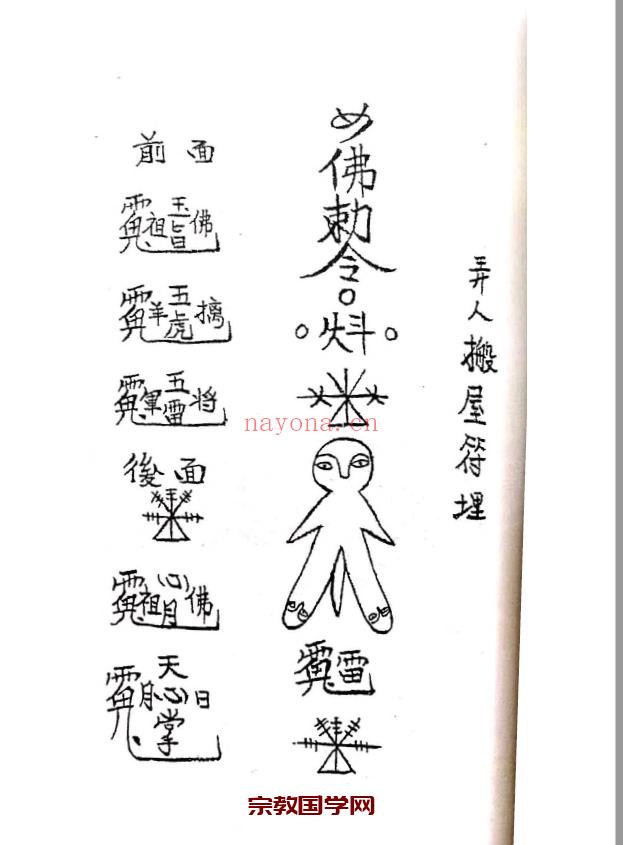 弄人搬屋符埋
佛勅令
雷
前面
玉
祖旨佛
五
羊虎擒
五
軍雷将
後面
心
祖月佛
天
月心日
掌
nayona.cn
宗教国学网